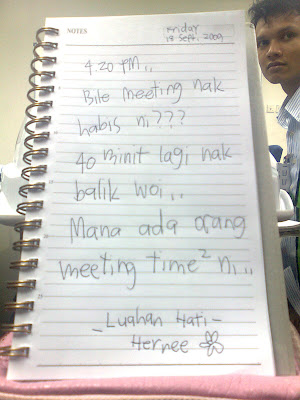 NOTES
Friday
18 Sept, 2009
4.20 pm,,
Bile meeting nak
habis ni???
40 minit lagi nak
balik woi,,
Mana ada orang
meeting time² ni,,
- Luahan Hati -
Hernee